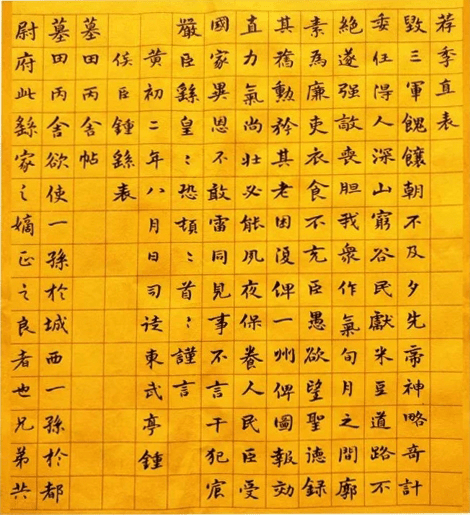 荐季直表
毀三軍餽饟朝不及夕先帝神略奇計
委任得人深山窮谷民獻米豆道路不
絕遂强敵喪胆我衆作氣旬月之間廓
素為廉吏衣食不充臣愚欲望聖德錄
其舊勳矜其老困復俾一州俾圖報効
直力氣尚壯必能夙夜保養人民臣受
國家異恩不敢雷同見事不言干犯宸
嚴臣繇皇:恐頓:首:謹言
黄初二年八月日司徒東武亭鍾
侯臣鍾繇表
墓田丙舍帖
墓田丙舍欲使一孫於城西一孫於都
尉府此繇家之嫡正之良者也兄弟共